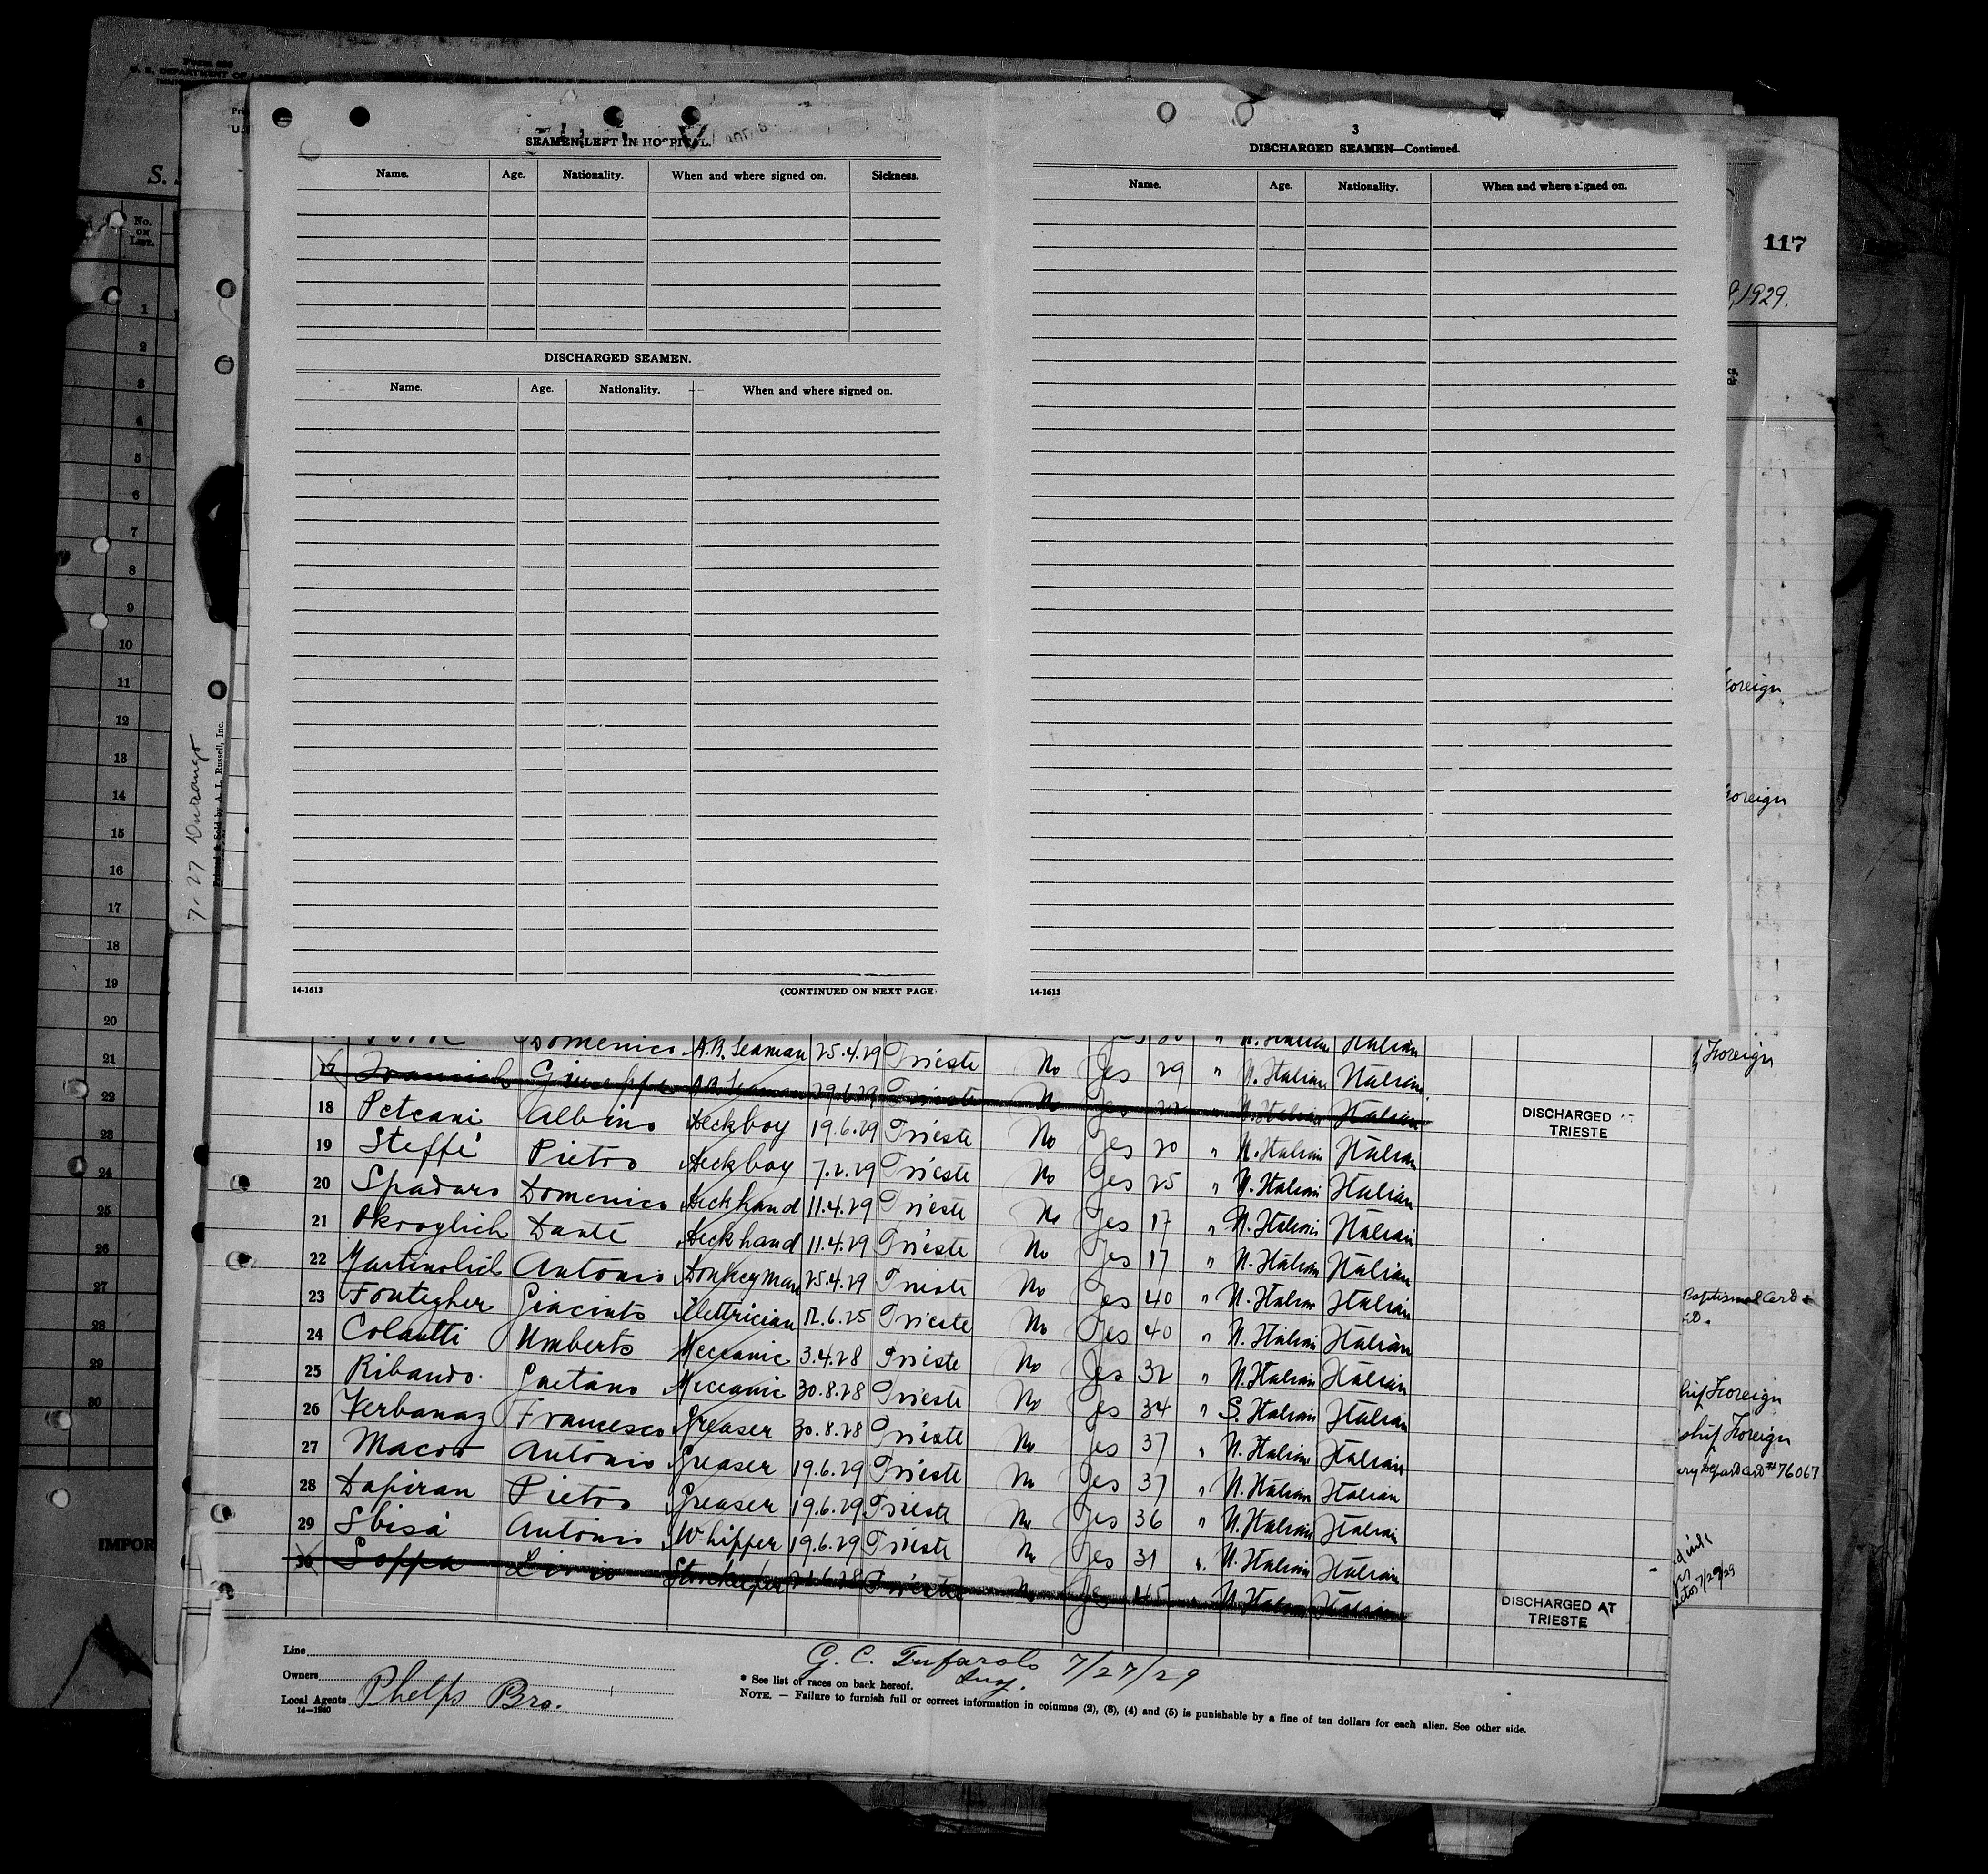 Form 680
U. S. DEPARTMENT OF
S.
No. ON LIST.
1
2
3
4
5
6
7
8
9
10
11
12
13
14
15
16
17
18
19
20
21
22
23
24
25
26
27
28
29
30
IMPOR
7-27 Durango
Printed & Sold by A. L. Russell, Inc.
SEAMEN LEFT IN HOSPITAL.
Name. Age. Nationality. When and where signed on. Sickness.
DISCHARGED SEAMEN.
Name. Age. Nationality. When and where signed on.
14-1613 (CONTINUED ON NEXT PAGE
3
DISCHARGED SEAMEN—Continued.
Name. Age. Nationality. When and where signed on.
14-1613
117
1929.
Foreign
Foreign
Foreign
Baptismal Card
hip Foreign
ship Foreign
#76067
7/29/29
Domenico A.B. Seaman 25.4.29 Trieste No Yes 29 " N. Italian Italian
17 Giuseppe A.B. Seaman 29.6.29 Trieste No Yes N. Italian Italian DISCHARGED TRIESTE
18 Peteani Albino Deckboy 19.6.29 Trieste No Yes 20 " N. Italian Italian
19 Steffè Pietro Deckboy 7.2.29 Trieste No Yes 25 " N. Italian Italian
20 Spadaro Domenico Deckhand 11.4.29 Trieste No Yes 17 " N. Italian Italian
21 Okroglich Dante Deckhand 11.4.29 Trieste No Yes 17 " N. Italian Italian
22 Martinolich Antonio Donkeyman 25.4.29 Trieste No Yes 40 " N. Italian Italian
23 Fontegher Giacinto Elettrician 12.6.25 Trieste No Yes 40 " N. Italian Italian
24 Colautti Umberto Meccanic 3.4.28 Trieste No Yes 32 " N. Italian Italian
25 Ribaudo Gaetano Meccanic 30.8.28 Trieste No Yes 34 " S. Italian Italian
26 Verbanaz Francesco Greaser 30.8.28 Trieste No Yes 37 " N. Italian Italian
27 Macor Antonio Greaser 19.6.29 Trieste No Yes 37 " N. Italian Italian
28 Dapiran Pietro Greaser 19.6.29 Trieste No Yes 36 " N. Italian Italian
29 Sbisà Antonio Whipper 19.6.29 Trieste No Yes 31 " N. Italian Italian
30 Soppa Livio Storekeeper Trieste No Yes 45 " N. Italian Italian DISCHARGED AT TRIESTE
Line
Owners
Local Agents Phelps Bro.
14—1240
G. C. Tufarolo 7/27/29
Insp.
* See list of races on back hereof.
NOTE. — Failure to furnish full or correct information in columns (2), (3), (4) and (5) is punishable by a fine of ten dollars for each alien. See other side.